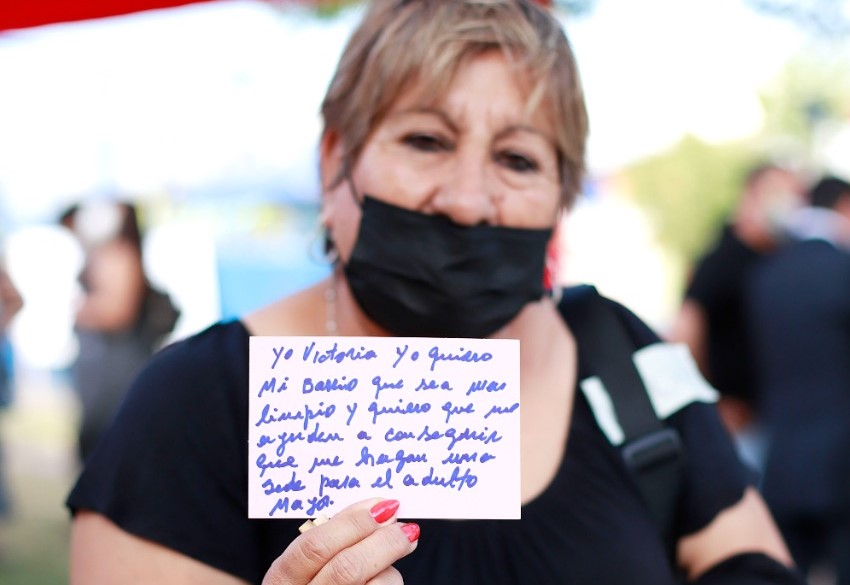 Yo Victoria Yo quiero
Mi Barrio que sea mas
limpio y quiero que me
ayuden a conseguir
que me hagan una
sede para el adulto
Mayor.